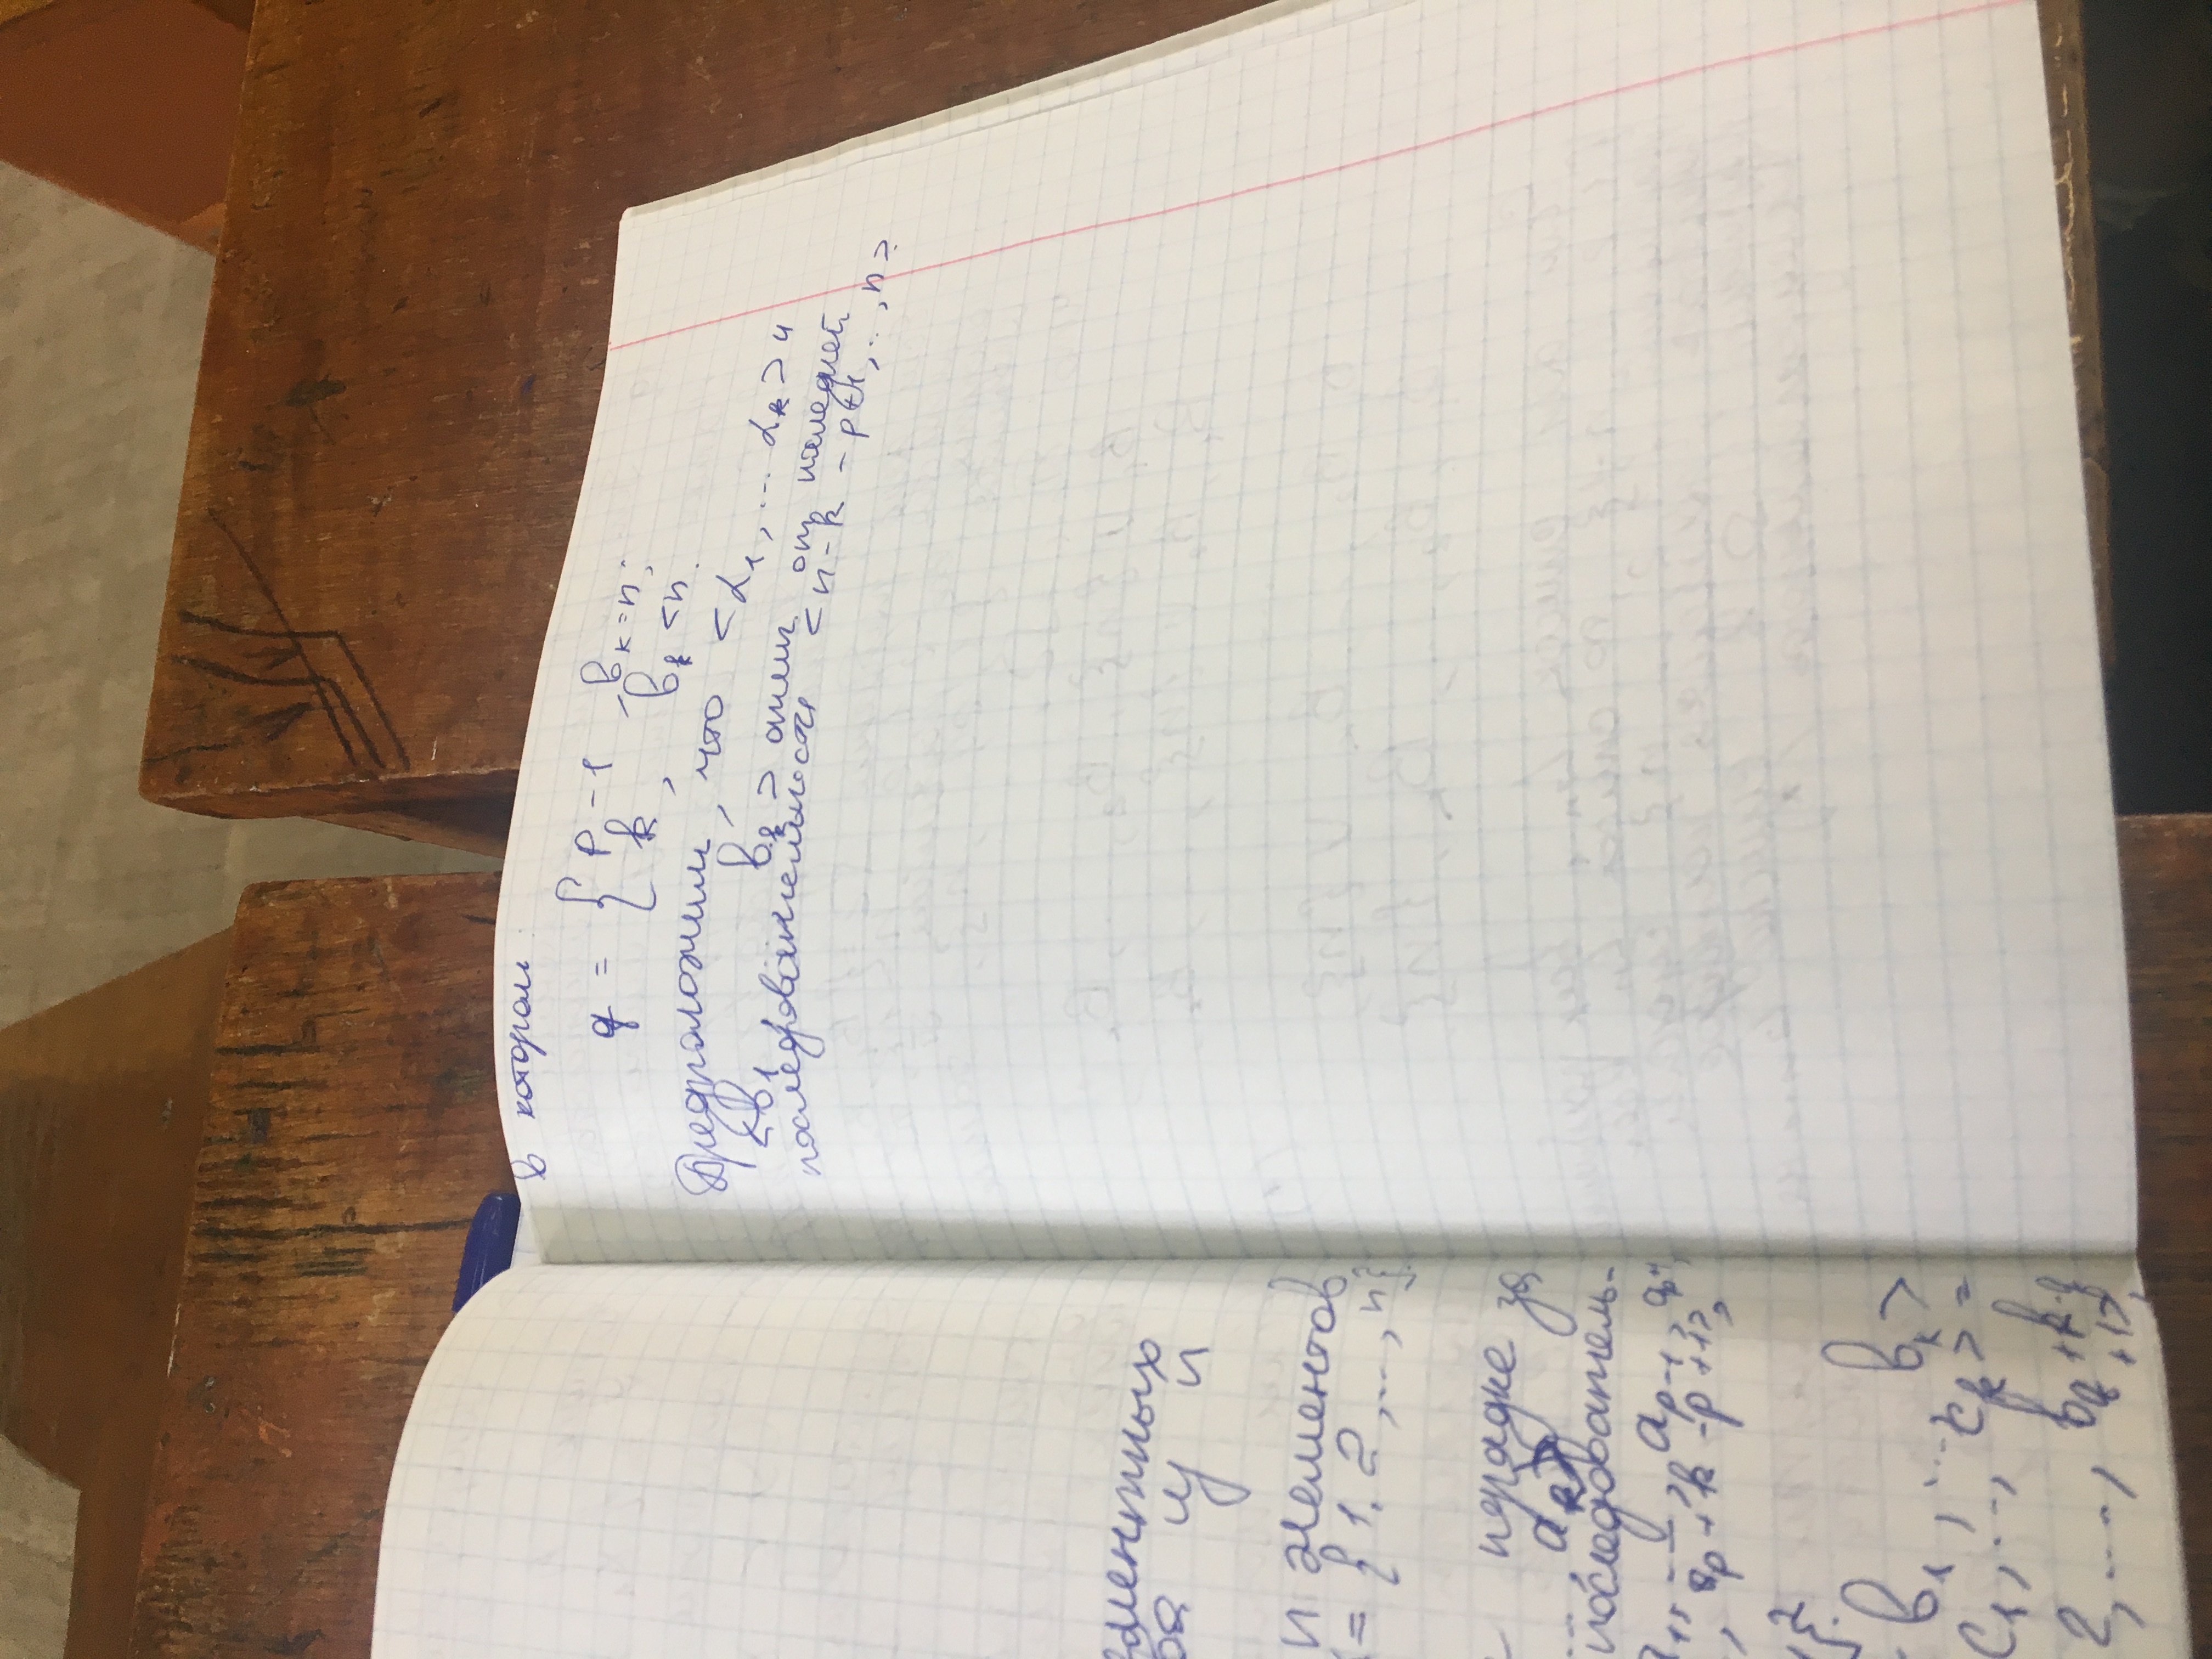 ементных
из n
n элементов
= {1, 2, ..., n}
порядке за
..., aₖ>
последователь-
..., aₚ₋₁, aₚ+1,
, aₚ + k - p + 1>,
<b₁, ..., bₖ>
c₁, ..., cₖ> =
2, ..., b_q + k - q
+ 1>,
в котором:
q = { p - 1, bₖ = n;
k, bₖ < n.
Предположим, что <α₁, ... αₖ> и
<b₁, bₖ> отлич. от последней
последовательности <n - k - p + 1, ..., n>